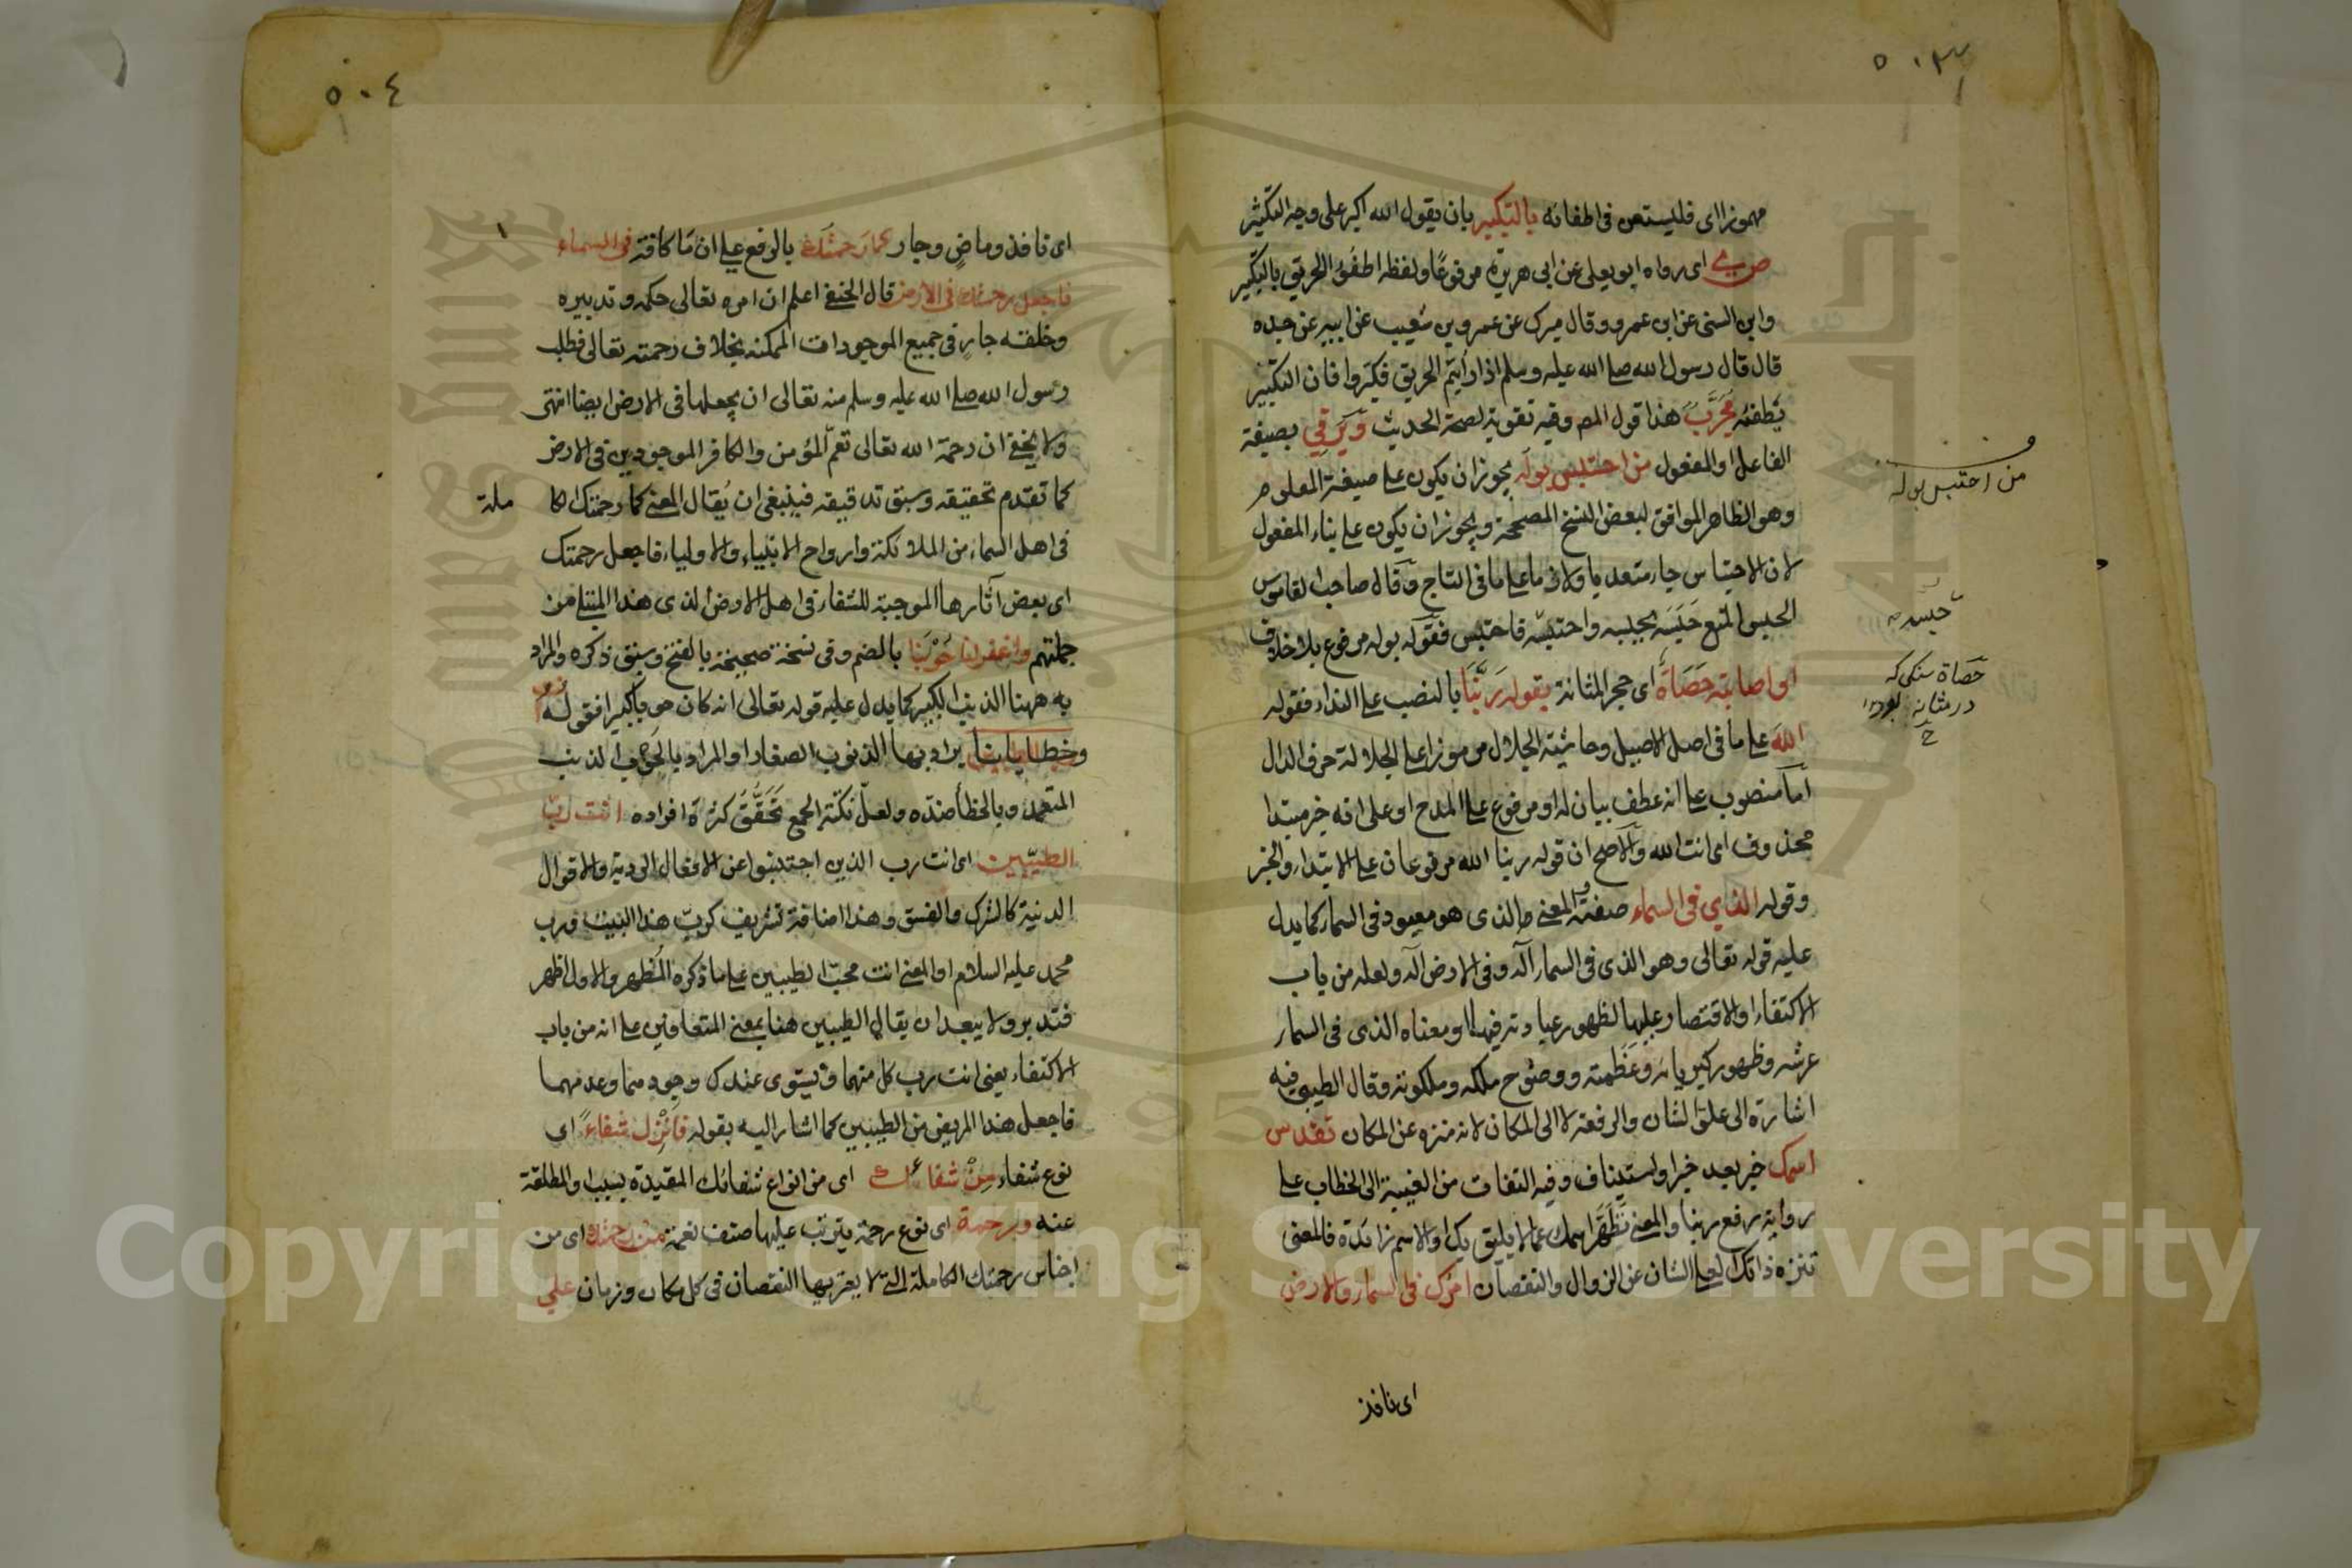 ٥٠٣
مهموزا اى فليستعن فى اطفائه بالتكبير بان يقول الله اكبر على وجه التكثير
ص ى اى رواه ابو يعلى عن ابى هريرة مرفوعًا ولفظه اطفئوا الحريق بالتكبير
وابن السنى عن ابن عمرو وقال ميرك عن عمرو بن شعيب عن ابيه عن جده
قال قال رسول الله صلى الله عليه وسلم اذا رأيتم الحريق فكبّروا فان التكبير
يطفئه مجرَّبٌ هذا قول المص وفيه تقوية لصحة الحديث وَيُرقى بصيغة
الفاعل او المفعول من احتبس بوله يجوز ان يكون على صيغة المعلوم
وهو الظاهر الموافق لبعض النسخ المصححة ويجوز ان يكون على بناء المفعول
لان الاحتباس جاء متعديا ولازما على ما فى التاج وقال صاحب القاموس
الحبس المنع حَبَسَه يحبسه واحتبسه فاحتبس فقوله بوله مرفوع بلا خلاف
او اصابته حَصَاةٌ اى حجر المثانة يقوله رَبَّنَا بالنصب على النداء فقوله
اللهَ على ما فى اصل الاصيل وحاشية الجلال مرموزا على الجلالة حرف الدال
اما منصوب على انه عطف بيان له او مرفوع على المدح او على انه خبر مبتدا
محذوف اى انت الله والاصح ان قوله ربنا الله مرفوعان على الابتداء والخبر
وقوله الذي فى السماء صفته والمعنى الذى هو معبود فى السماء كما يدل
عليه قوله تعالى وهو الذى فى السماء آله وفى الارض آله ولعله من باب
الاكتفاء او الاقتصار عليها لظهور عبادته فيها او معناه الذى فى السماء
عرشه وظهور كبريائه وعَظَمته ووضوح ملكه وملكوته وقال الطيبى فيه
اشارة الى علوّ الشان والرفعة لا الى المكان لانه منزه عن المكان تقدس
اسمك خبر بعد خبر او استيناف وفيه التفات من الغيبة الى الخطاب على
رواية رفع ربنا والمعنى تَطَهَّر اسمك عما لا يليق بك او الاسم زائدة فالمعنى
تنزه ذاتك العلى الشان عن الزوال والنقصان امرك فى السماء والارض
اى نافذ
من احتبس بوله
حبسه
حصاة سنكى كه
در مثانه بود
٥٠٤
اى نافذ وماضٍ وجار كما رَحمتُك بالرفع على ان مَا كافة فى السماء
فاجعل رحمتك فى الارض قال الحنفى اعلم ان امره تعالى حكمه وتدبيره
وخلقه جارٍ فى جميع الموجودات الممكنه بخلاف رحمته تعالى فطلب
رسول الله صلى الله عليه وسلم منه تعالى ان يجعلها فى الارض ايضا انتهى
ولا يخفى ان رحمة الله تعالى تعمّ المؤمن والكافر الموجودين فى الارض
كما تقدم تحقيقه وسبق تدقيقه فينبغى ان يُقال المعنى كما رحمتك
فى اهل السماء من الملائكة وارواح الانبياء والاولياء فاجعل رحمتك
اى بعض آثارها الموجبة للشفاء فى اهل الارض الذى هذا المبتلى من
جملتهم واغفر لنا حُوْبَنَا بالضم وفى نسخة صحيحة بالفتح وسبق ذكره والمراد
به ههنا الذنب الكبير كما يدل عليه قوله تعالى انه كان حوبا كبيرا فقوله
وخطايانا يراد بها الذنوب الصغار او المراد بالحوب الذنب
المتعمد وبالخطأ ضدّه ولعلّ نكتة الجمع تَحَقُّقُ كثرة افراده انت ربّ
الطيّبين اى انت رب الذين اجتنبوا عن الافعال الردية والاقوال
الدنية كالشرك والفسق وهذا اضافة تشريف كربّ هذا البيت ورب
محمد عليه السلام او المعنى انت محبّ الطيبين على ما ذكره المُظهر والاول اظهر
فتدبر ولا يبعد ان يقال الطيبين هنا بمعنى المتعافين على انه من باب
الاكتفاء يعنى انت رب كل منهما ويستوى عندك وجودهما وعدمهما
فاجعل هذا المريض من الطيبين كما اشار اليه بقوله فأَنْزِل شفاءً اى
نوع شفاء مِنْ شفائك اى من انواع شفائك المقيدة بسبب او المطلقة
عنه ورحمة اى نوع رحمة يترتب عليها صنف نعمة من رحمتك اى من
اجناس رحمتك الكاملة التى لا يعتريها النقصان فى كل مكان وزمان على
Copyright © King Saud University
1957